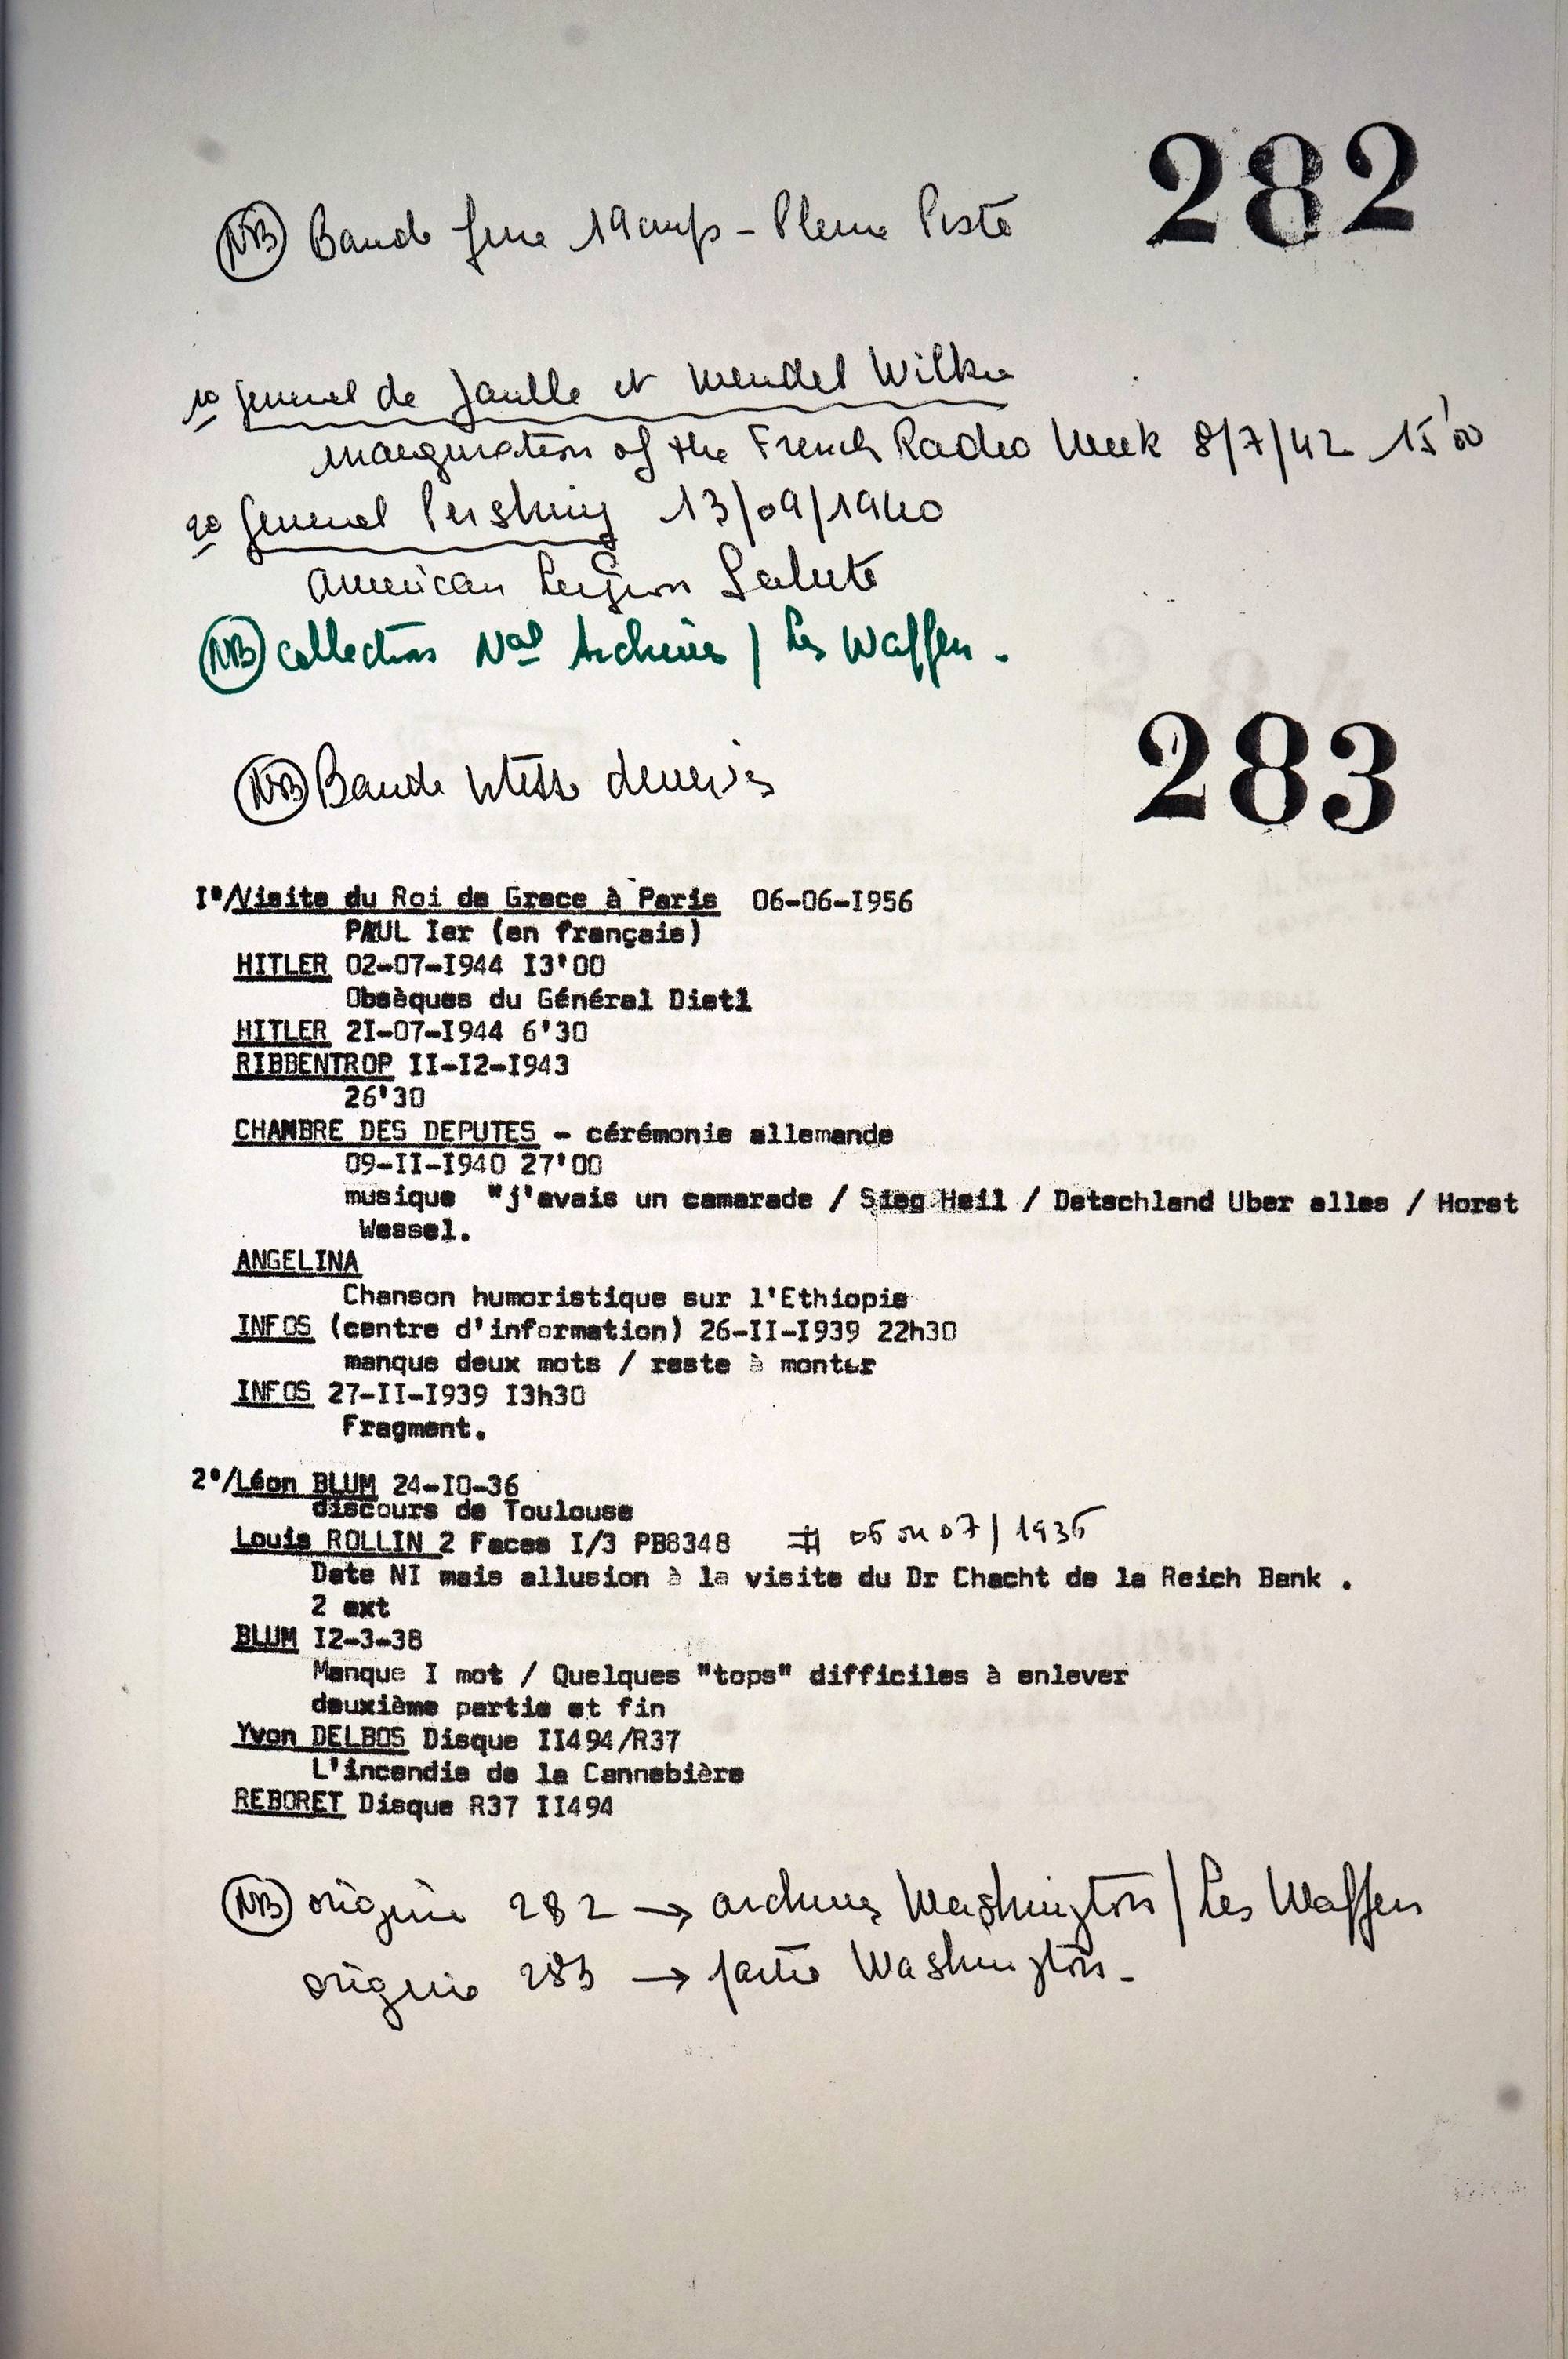 282
NB Bande fine 19cm/s - Pleine Piste
1º General de Gaulle et Wendel Wilkie
inauguration of the French Radio Week 8/7/42 15'00
2º General Pershing 13/09/1940
American Legion Salute
NB collection Nal Archives / Les Waffen.
283
NB Bande vitesse
I°/Visite du Roi de Grece à Paris 06-06-I956
PAUL Ier (en français)
HITLER 02-07-I944 I3'00
Obsèques du Général Dietl
HITLER 2I-07-I944 6'30
RIBBENTROP II-I2-I943
26'30
CHAMBRE DES DEPUTES - cérémonie allemande
09-II-I940 27'00
musique "j'avais un camarade / Sieg Heil / Detschland Uber alles / Horst
Wessel.
ANGELINA
Chanson humoristique sur l'Ethiopie
INFOS (centre d'information) 26-II-I939 22h30
manque deux mots / reste à monter
INFOS 27-II-I939 I3h30
Fragment.
2°/Léon BLUM 24-I0-36
discours de Toulouse
Louis ROLLIN 2 Faces I/3 PB8348 # 06 ou 07/1936
Date NI mais allusion à la visite du Dr Chacht de la Reich Bank .
2 ext
BLUM I2-3-38
Manque I mot / Quelques "tops" difficiles à enlever
deuxième partie et fin
Yvon DELBOS Disque II494/R37
L'incendie de la Cannebière
REBORET Disque R37 II494
NB origine 282 → archives Washington / Les Waffen
origine 283 → partie Washington.